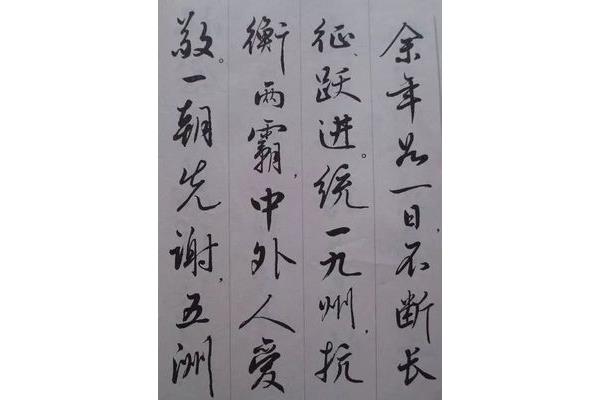 余年如一日,不断长
征、跃进。统一九州,抗
衡两霸,中外人爱
敬。一朝先谢,五洲